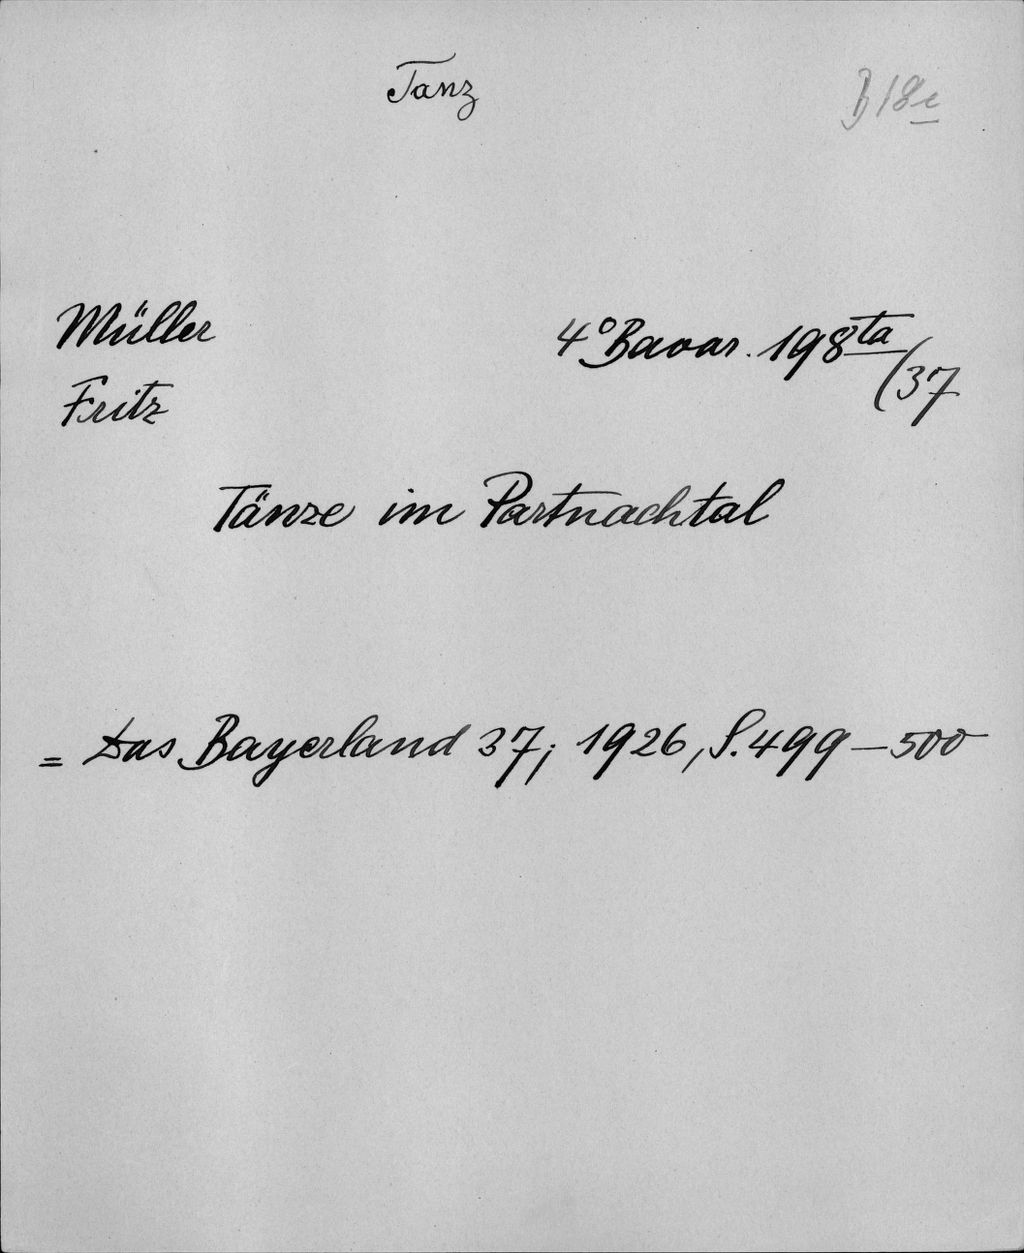 Tanz
B18e
Müller
4° Bavar. 198 ta/37
Fritz
Tänze im Partnachtal
= Das Bayerland 37; 1926, S. 499–500